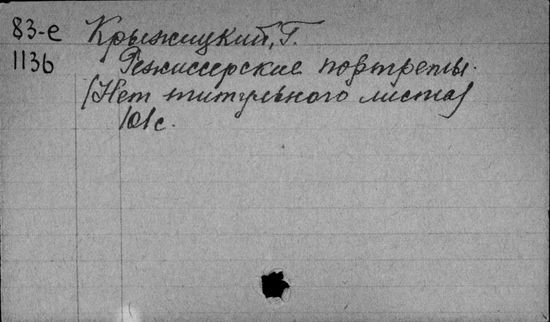 83-е Крыжицкий, Г.
1136 Режиссерские портреты.
(Нет титульного листа)
101с.